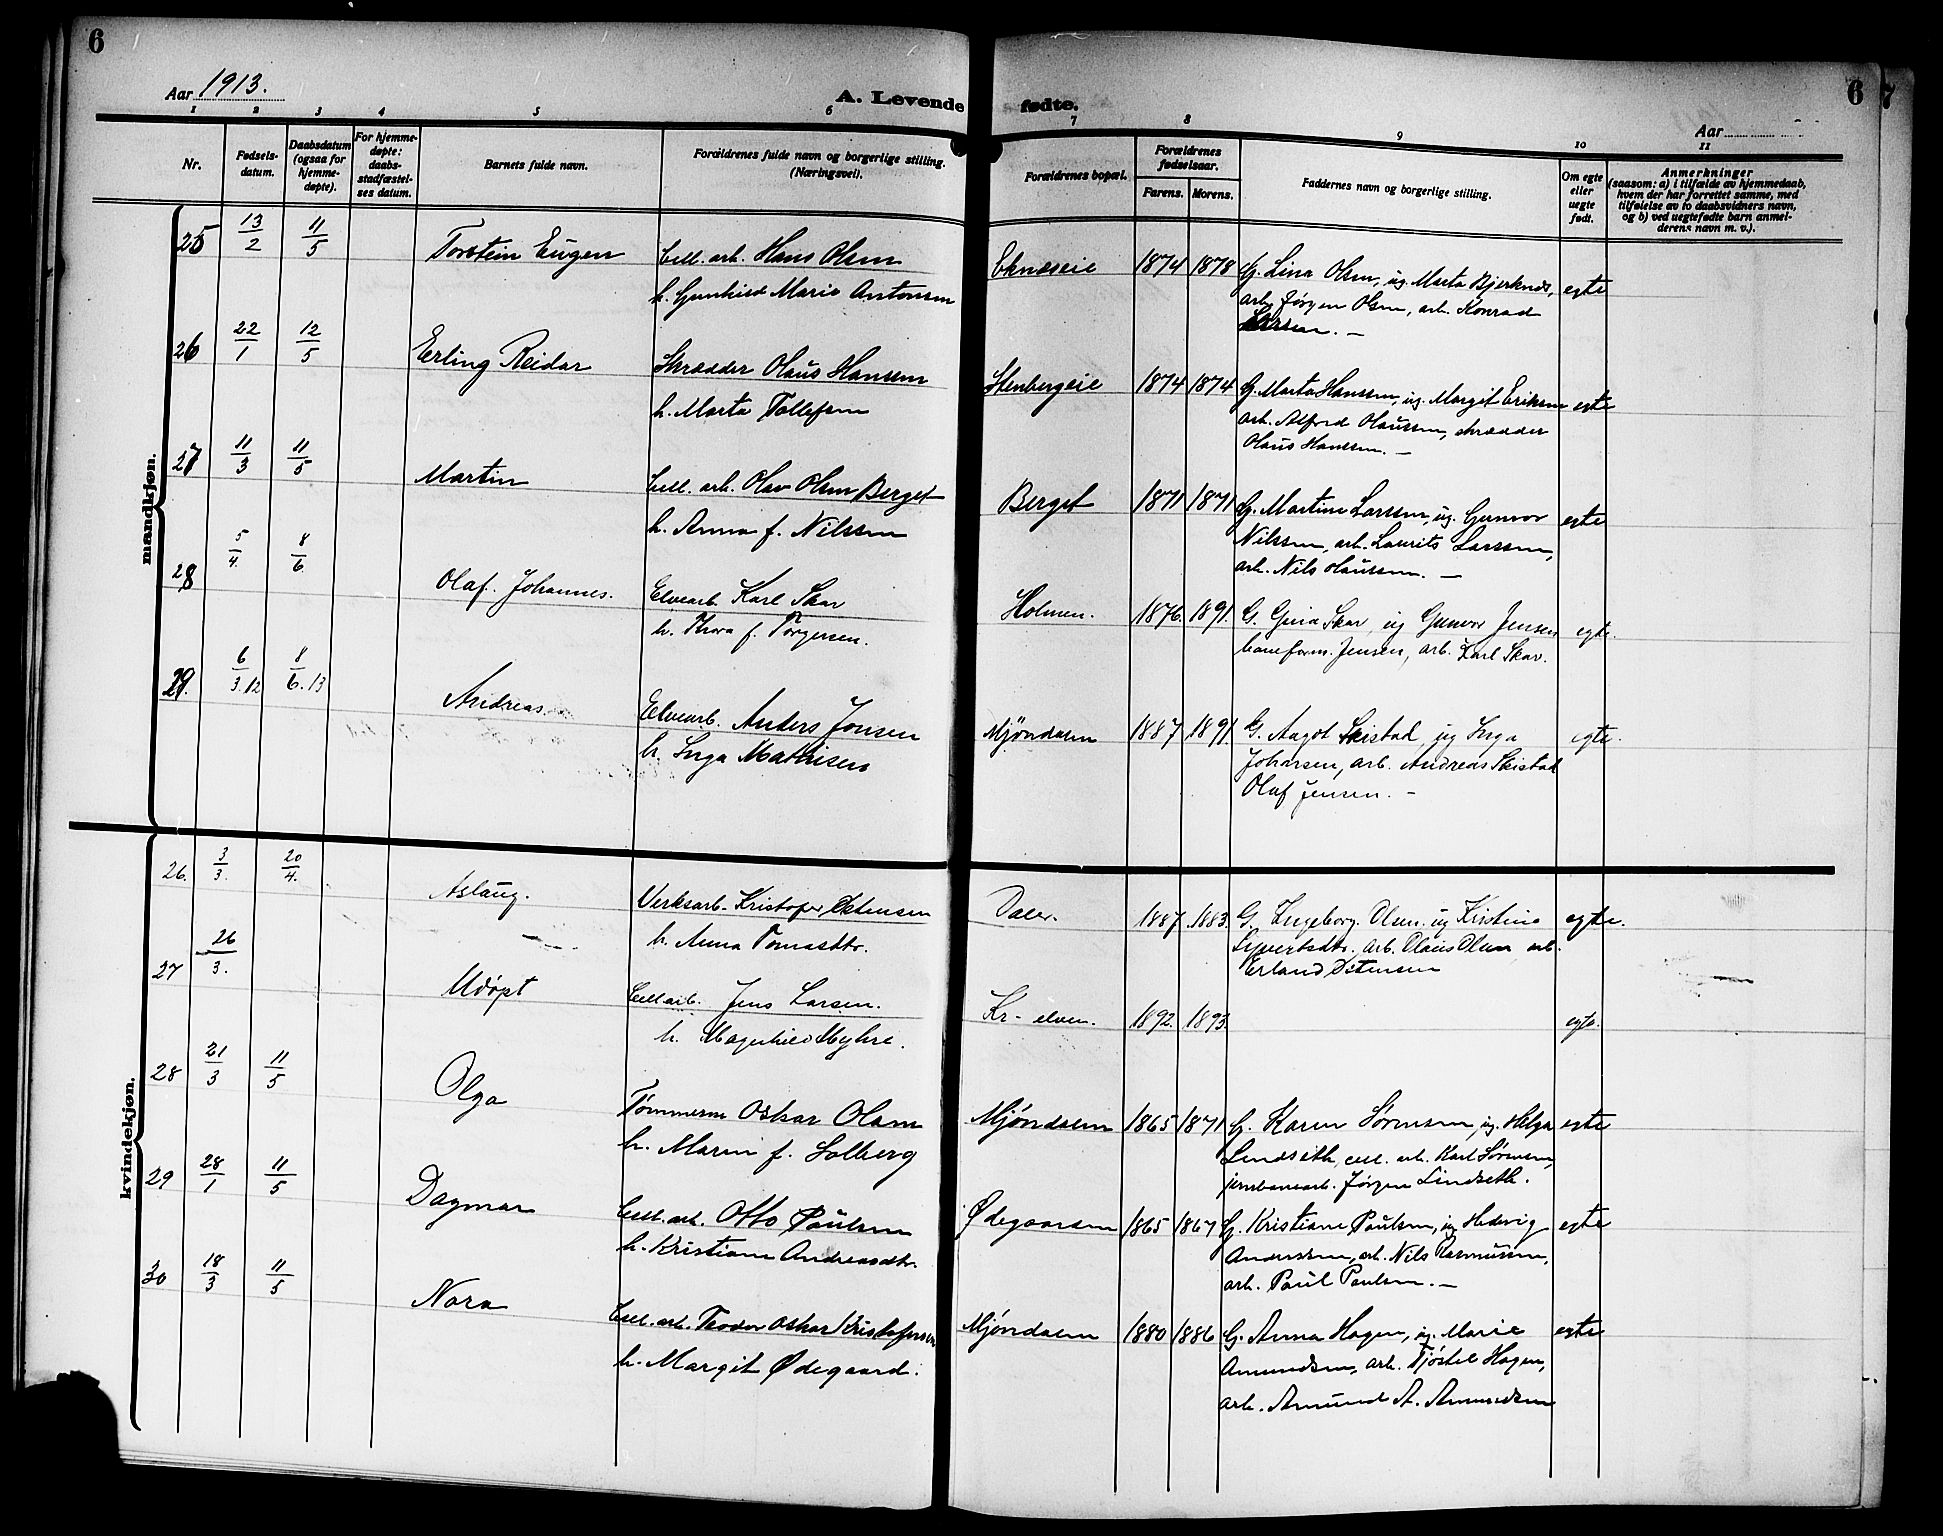 6
Aar 1913.
A. Levende fødte.
6
7
Aar
1 2 3 4 5 6 7 8 9 10 11
Nr.
Fødsels-
datum.
Daabsdatum
(ogsaa for
hjemme-
døpte).
For hjemme-
døpte:
daabs-
stadfæstel-
ses datum.
Barnets fulde navn.
Forældrenes fulde navn og borgerlige stilling.
(Næringsvei).
Forældrenes bopæl.
Forældrenes
fødselsaar.
Farens. Morens.
Faddernes navn og borgerlige stilling.
Om egte
eller
uegte
født.
Anmerkninger
(saasom: a) i tilfælde av hjemmedaab,
hvem der har forrettet samme, med
tilføielse av to daabsvidners navn,
og b) ved uegtefødte barn anmel-
derens navn m. v.).
mandkjøn.
25 13/2 11/5 Torstein Eugen
Cell. arb. Hans Olsen
h. Gunhild Marie Antonsen
Eknæseie 1874 1878
G. Lina Olsen, ug. Marta Bjerknes,
arb. Jørgen Olsen, arb. Konrad
Larsen. —
egte
26 22/1 12/5 Erling Reidar
Skrædder Olaus Hansen
h. Marta Tollefsen
Stenbergeie 1874 1874
G. Marta Hanssen, ug. Margit Eriksen
arb. Alfred Olaussen, skrædder
Olaus Hansen. —
egte
27 11/3 11/5 Martin
Cell. arb. Olav Olsen Berget
h. Anna f. Nilssen
Berget 1871 1871
G. Martine Larssen, ug. Gunvor
Nilssen, arb. Laurits Larssen,
arb. Nils Olaussen. —
egte
28 5/4. 8/6. Olaf. Johannes.
Elvearb. Karl Skar
h. Thora f. Torgersen.
Holmen. 1876. 1891.
G. Gina Skar, ug Gunvor Jensen
baneform. Jensen, arb. Karl Skar.
egte.
29. 6/3.12 8/6.13 Andreas.
Elvearb. Anders Jonsen
h. Inga Mathisen
Mjøndalen 1887 1891.
G. Aagot Skistad, ug Inga
Johansen, arb. Andreas Skistad
Olaf Jensen. —
egte.
kvindekjøn.
26. 3/3. 20/4. Aslaug.
Verksarb. Kristofer Østensen
h. Anna Tomasdtr.
Daler. 1887. 1883.
G. Ingeborg. Olsen. ug Kristine
Syvertsdtr. arb. Olaus Olsen arb.
Erland Østensen
egte.
27 26/3. Udøpt
Cell arb. Jens Larsen.
h. Magnhild Myhre.
Kr- elven. 1892. 1893.
egte.
28 21/3 11/5 Olga
Tømmerm Oskar Olsen
h. Maren f. Solberg
Mjøndalen 1865 1871
G. Karen Sørensen, ug. Helga
Lindseth, cell. arb. Karl Sørensen,
jernbanearb. Jørgen Lindseth.
egte
29 28/1 11/5 Dagmar
Cell. arb. Otto Paulsen
h. Kristiane Andreasdtr.
Ødegaarden 1865 1867
G. Kristiane Paulsen, ug Hedvig
Anderssen, arb. Nils Rasmussen,
arb. Paul Paulsen. —
egte
30 18/3 11/5 Nora
Cell. arb. Teodor Oskar Kristofersen
h. Margit Ødegaard.
Mjøndalen 1880 1886
G. Anna Hagen, ug. Marie
Amundsen, arb. Tjøstel Hagen,
arb. Amund A. Amundsen
egte